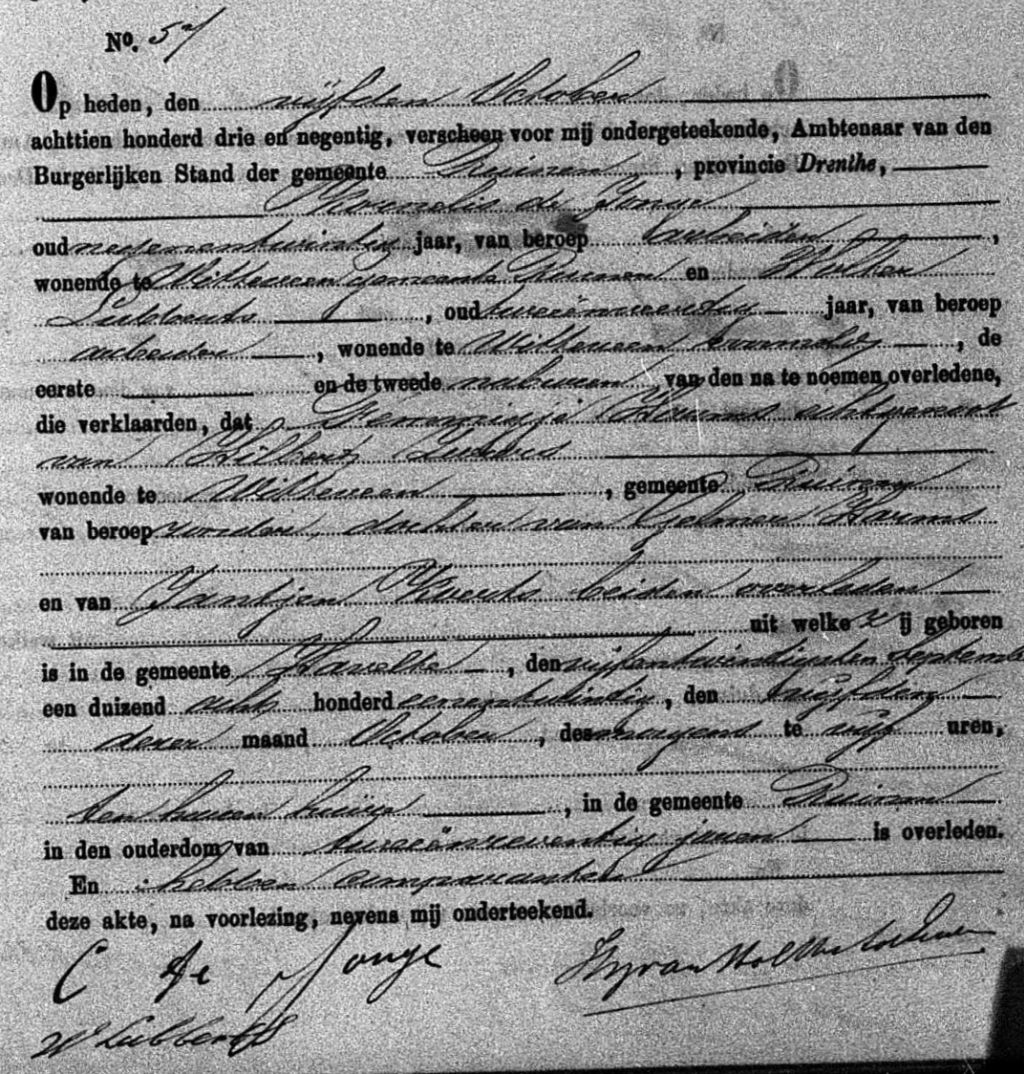 No. 57
Op heden, den vijfden October
achttien honderd drie en negentig, verscheen voor mij ondergeteekende, Ambtenaar van den
Burgerlijken Stand der gemeente Ruinen, provincie Drenthe,
Kornelis de Jonge
oud negenentwintig jaar, van beroep arbeider,
wonende te Witteveen gemeente Ruinen en Wolter
Lubberts, oud tweeënveertig jaar, van beroep
arbeider, wonende te Witteveen voormeld, de
eerste en de tweede naburen van den na te noemen overledene,
die verklaarden, dat Harms echtgenoot
van Hilbert
wonende te Witteveen, gemeente Ruinen
van beroep zonder, dochter van Harms
en van Jantjen Koerts beiden overleden
uit welke zij geboren
is in de gemeente Havelte, den vijfentwintigsten September
een duizend acht honderd eenentwintig, den vijfden
dezer maand October, des morgens te vijf uren,
ten haren huize, in de gemeente Ruinen
in den ouderdom van tweeënzeventig jaren is overleden.
En hebben comparanten
deze akte, na voorlezing, nevens mij onderteekend.
C de Jonge
W Lubberts